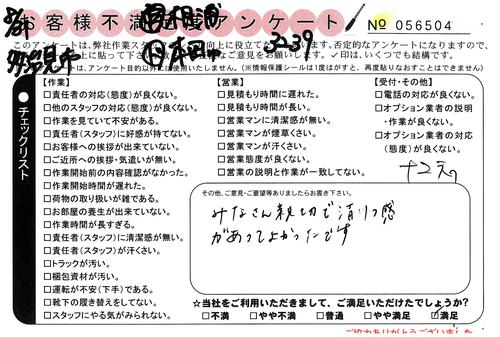 お客様不満足度アンケート No 056504
このアンケートは、弊社作業スタ の向上に役立て います。否定的なアンケートになりますので、
に貼って下さ ご意見をお願いします。✓印は、いくつでも結構です。
は、アンケート目的以外には使用いたしません。(※情報保護シールは1度はがすと、再度貼りなおすことはできません)
32-39
チェックリスト
【作業】
□責任者の対応(態度)が良くない。
□他のスタッフの対応(態度)が良くない。
□作業を見ていて不安がある。
□責任者(スタッフ)に好感が持てない。
□お客様への挨拶が出来ていない。
□ご近所への挨拶・気遣いが無い。
□作業開始前の内容確認がなかった。
□作業開始時間が遅れた。
□荷物の取り扱いが雑である。
□お部屋の養生が出来ていない。
□作業時間が長すぎる。
□責任者(スタッフ)に清潔感が無い。
□責任者(スタッフ)が汗くさい。
□トラックが汚い。
□梱包資材が汚い。
□運転が不安(下手)である。
□靴下の履き替えをしてない。
□スタッフにやる気がみられない。
【営業】
□見積もり時間に遅れた。
□見積もり時間が長い。
□営業マンに清潔感が無い。
□営業マンが煙草くさい。
□営業マンが汗くさい。
□営業態度が良くない。
□営業の説明と作業が一致してない。
【受付・その他】
□電話の対応が良くない。
□オプション業者の説明
・作業が良くない。
□オプション業者の対応
(態度)が良くない。
その他、ご意見・ご要望等ありましたらお書き下さい。
みなさん親切で清けつ感
があってよかったです
☆当社をご利用いただきまして、ご満足いただけたでしょうか?
□不満 □やや不満 □普通 □やや満足 ☑満足
ご協力ありがとうございました